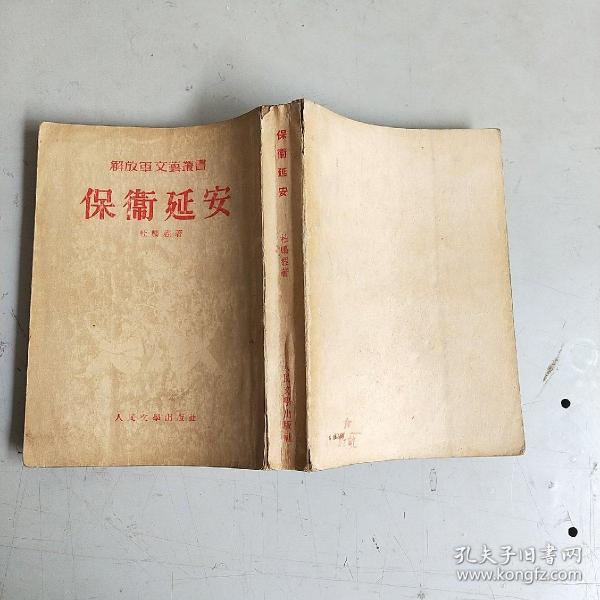 解放軍文藝叢書
保衞延安
杜鵬程著
人民文學出版社
保衞延安
杜鵬程著
人民文學出版社
孔夫子旧书网
www.kongfz.com